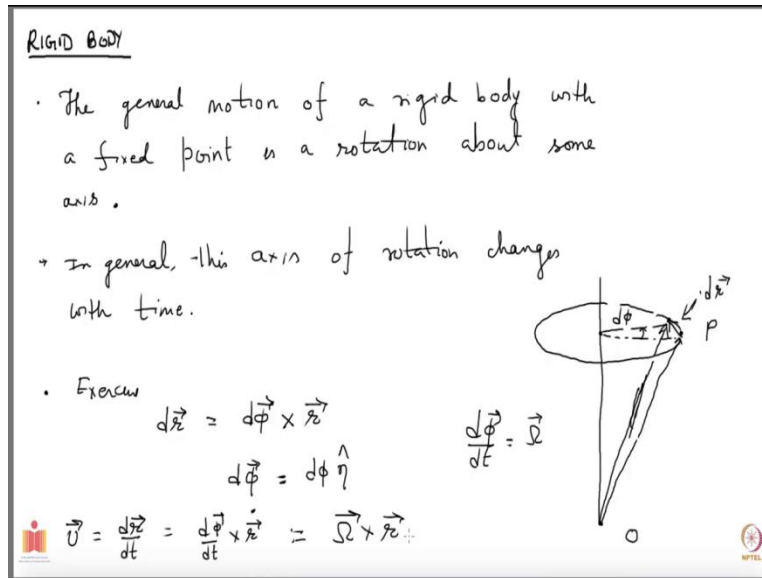 RIGID BODY
• The general motion of a rigid body with
a fixed point is a rotation about some
axis.
• In general, this axis of rotation changes
with time.
dφ
dr⃗
P
• Exercise
dr⃗ = dφ⃗ × r⃗
dφ⃗/dt = Ω⃗
dφ⃗ = dφ n̂
v⃗ = dr⃗/dt = dφ⃗/dt × r⃗ = Ω⃗ × r⃗
O
NPTEL